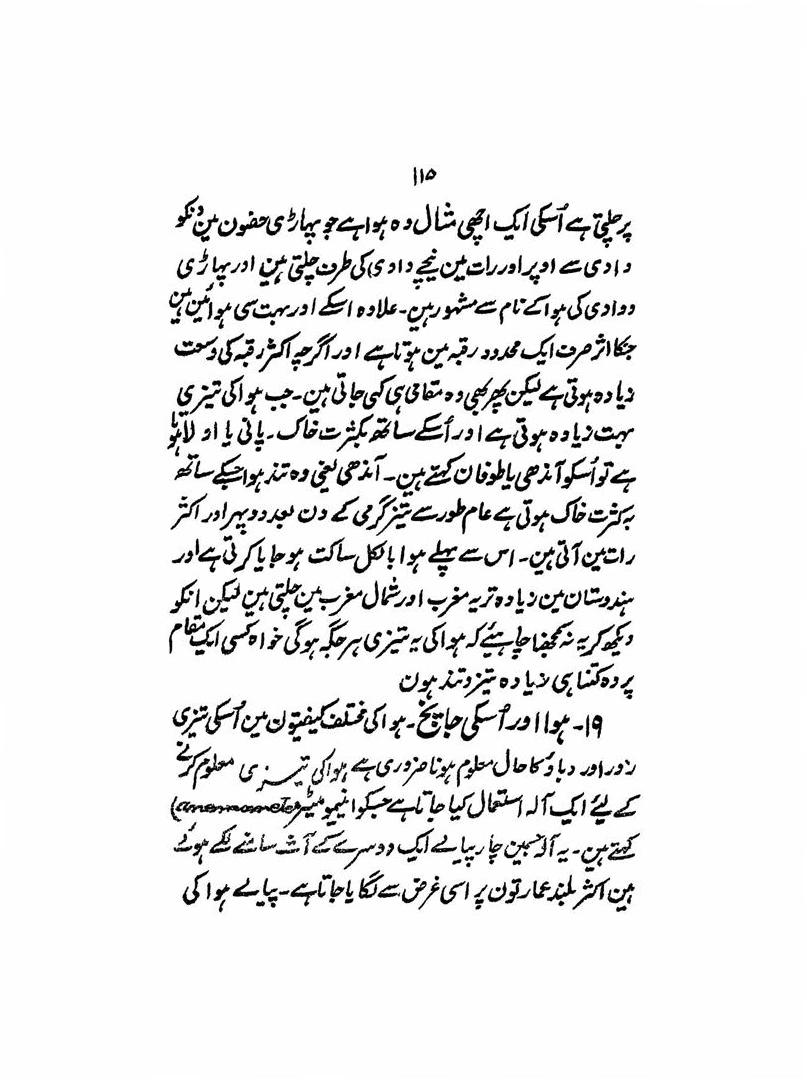 ۱۱۵
پر چلتی ہے اُسکی ایک اچھی مثال وہ ہوا ہے جو پہاڑی حصوں مین دنکو
وادی سے اوپر اور رات مین نیچے وادی کی طرف چلتی ہین اور پہاڑی
و وادی کی ہوا کے نام سے مشہور ہین۔ علاوہ اسکے اور بہت سی ہوائین ہین
جنکا اثر صرف ایک محدود رقبہ مین ہوتا ہے اور اگرچہ اکثر رقبہ کی وسعت
زیادہ ہوتی ہے لیکن پھر بھی وہ مقامی ہی کہی جاتی ہین۔ جب ہوا کی تیزی
بہت زیادہ ہوتی ہے اور اُسکے ساتھ بکثرت خاک۔ پانی یا اولا ہوتا
ہے تو اُسکو آندھی یا طوفان کہتے ہین۔ آندھی یعنی وہ تند ہوا جسکے ساتھ
بہ کثرت خاک ہوتی ہے عام طور سے تیز گرمی کے دن بعد دوپہر اور اکثر
رات مین آتی ہین۔ اس سے پہلے ہوا بالکل ساکت ہو جایا کرتی ہے اور
ہندوستان مین زیادہ تر یہ مغرب اور شمال مغرب مین چلتی ہین لیکن انکو
دیکھ کر یہ نہ سمجھنا چاہیئے کہ ہوا کی یہ تیزی ہر جگہ ہوگی خواہ کسی ایک مقام
پر وہ کتنا ہی زیادہ تیز و تند ہون
۱۹۔ ہوا اور اُسکی جانچ۔ ہوا کی مختلف کیفیتون مین اُسکی تیزی
زور اور دباؤ کا حال معلوم ہونا ضروری ہے ہوا کی تیزی معلوم کرنے
کے لیئے ایک آلہ استعمال کیا جاتا ہے جسکو انیمومیٹر (anemometer)
کہتے ہین۔ یہ آلہ جسمین چار پیالے ایک دوسرے کے آمنے سامنے لگے ہوئے
ہین اکثر بلند عمارتون پر اسی غرض سے لگایا جاتا ہے۔ پیالے ہوا کی